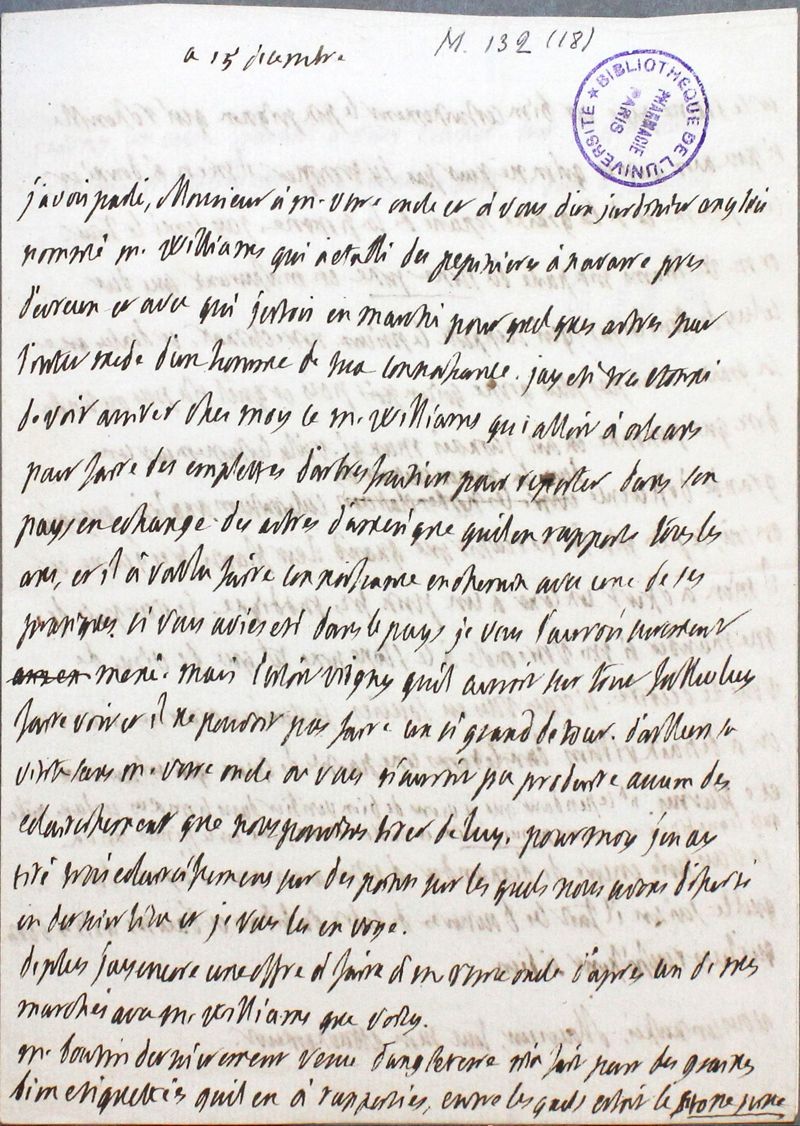 a 15 decembre
M. 132 (18)
BIBLIOTHEQUE DE L'UNIVERSITÉ ★
PHARMACIE
PARIS
j'avois parlé, Monsieur a mr votre oncle et a vous d'un jardinier anglois
nommé mr Williams qui a etabli des pepinieres à navarre pres
d'evreux et avec qui j'estois en marché pour quelques arbres par
l'entremede d'un homme de ma connoissance. j'ay eté tres etonné
de voir arriver chez moy ce mr Williams qui alloit à orleans
pour faire des emplettes d'arbres fruitiers pour reporter dans son
pays en echange des arbres d'amerique qu'il en rapporte tous les
ans, et il a voulu faire connoissance en chemin avec une de ses
pratiques. si vous aviés eté dans le pays je vous l'aurois surement
mené. mais c'estoit vrigny qu'il auroit sur tout fallu luy
faire voir et il ne pouvoit pas faire un si grand detour. d'ailleurs sa
visite sans mr votre oncle ou vous n'auroit pu produire aucun des
eclaircissement que nous pouvons tirer de luy. pour moy j'en ay
tiré trois eclaircissemens sur des points sur les quels nous avons disserté
en dernier lieu et je vous les envoye.
de plus j'ay encore une offre a faire a mr votre oncle d'apres un de mes
marchés avec mr Williams que voicy.
mr boutin dernierement venu d'angleterre m'a fait part des graines
bien etiquettées qu'il en a rapportées, entre les quels estoit le